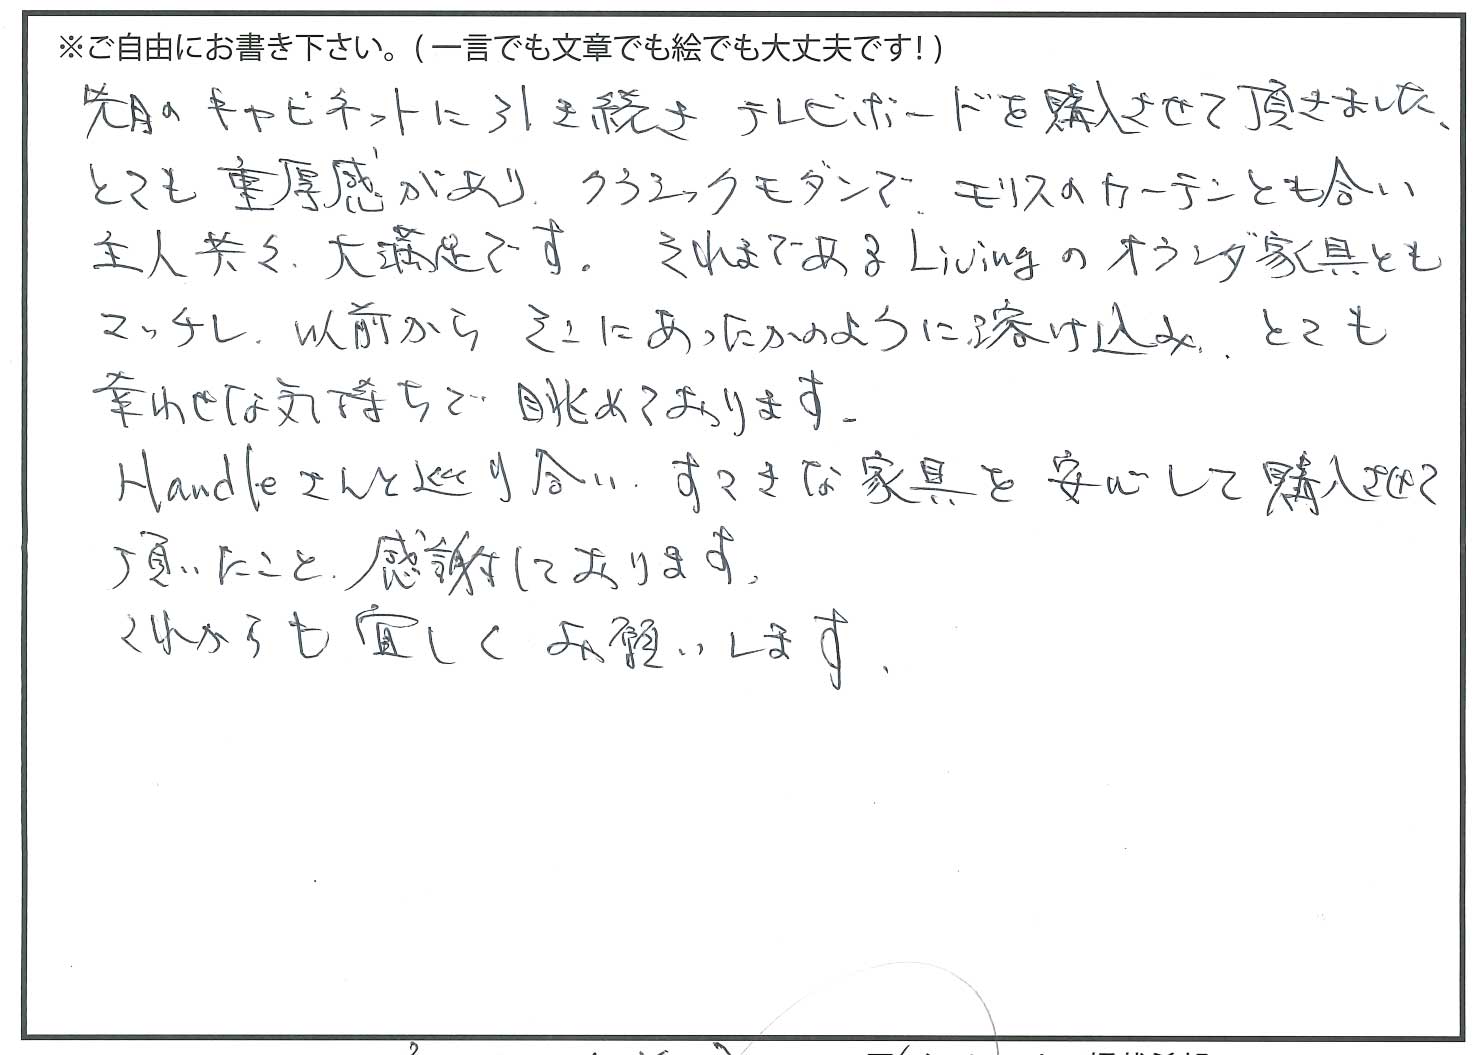 ※ご自由にお書き下さい。(一言でも文章でも絵でも大丈夫です!)
先月のキャビネットに引き続き テレビボードを購入させて頂きました、
とても重厚感があり、クラシックモダンで、モリスのカーテンとも合い
主人共々、大満足です。それまであるLivingのオランダ家具とも
マッチし、以前からそこにあったかのように溶け込み、とても
幸わせな気持ちで眺めております。
Handleさんと巡り合い、すてきな家具を安心して購入させて
頂いたこと、感謝しております、
これからも宜しくお願いします、